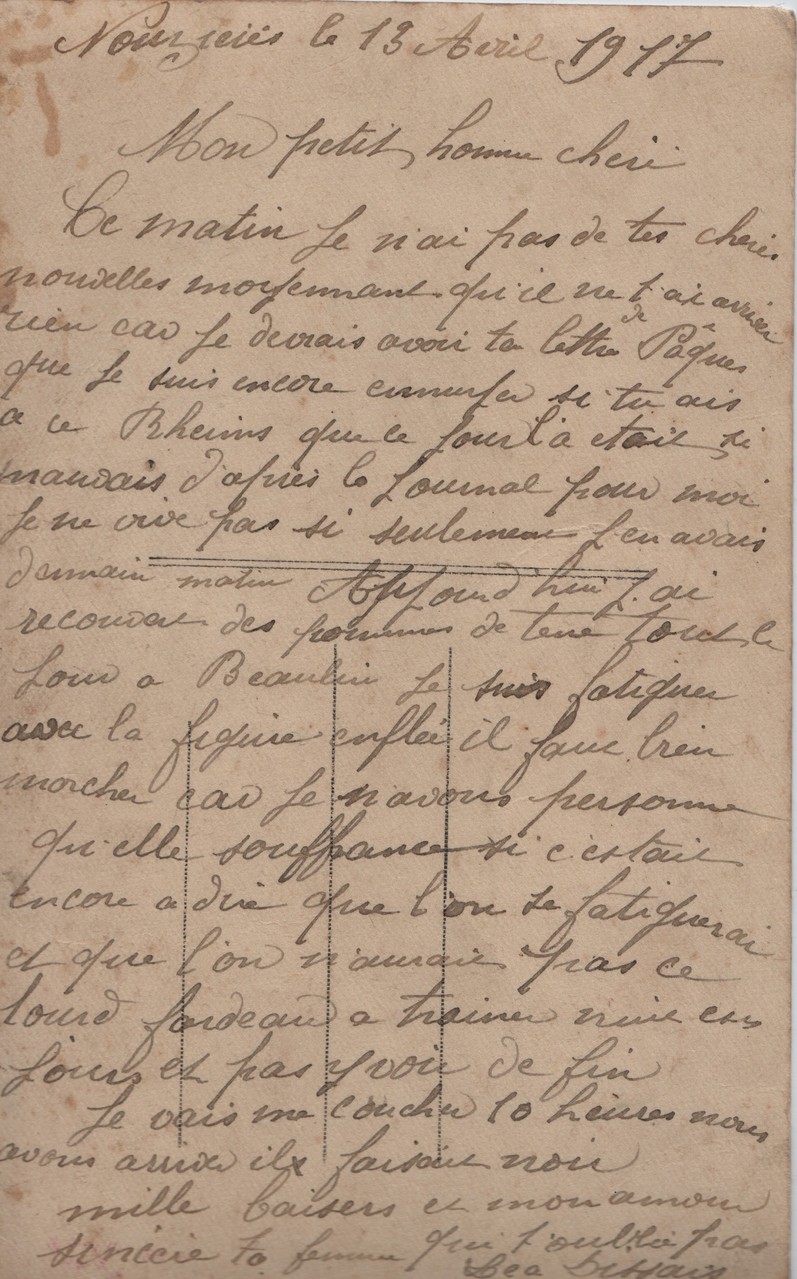 le 13 Avril 1917
Mon petit homme cheri
Ce matin Je n'ai pas de tes cheries
nouvelles moyennant qu'il ne t'ai arriver
rien car Je devrais avoir ta lettre de Pâques
que Je suis encore si tu ais
a ce Rheims que ce Jour la etait si
mauvais d'apres le Journal pour moi
Je ne vive pas si seulement J'en avais
demain matin Aujourd'hui J'ai
des pommes de terre tout le
Jour a Beaulieu Je suis fatiguer
avec la figure enflée il faut bien
marcher car Je n'avons personne
qu'elle souffrance si c'etait
encore a dire que l'on se fatiguerai
et que l'on n'aurait pas ce
lourd fardeau a trainer nuit et
Jours et pas y voir de fin
Je vais me coucher 10 heures nous
avons arrivé il faisait noir
mille baisers et mon amour
sincère ta femme qui t'oublie pas
Léa